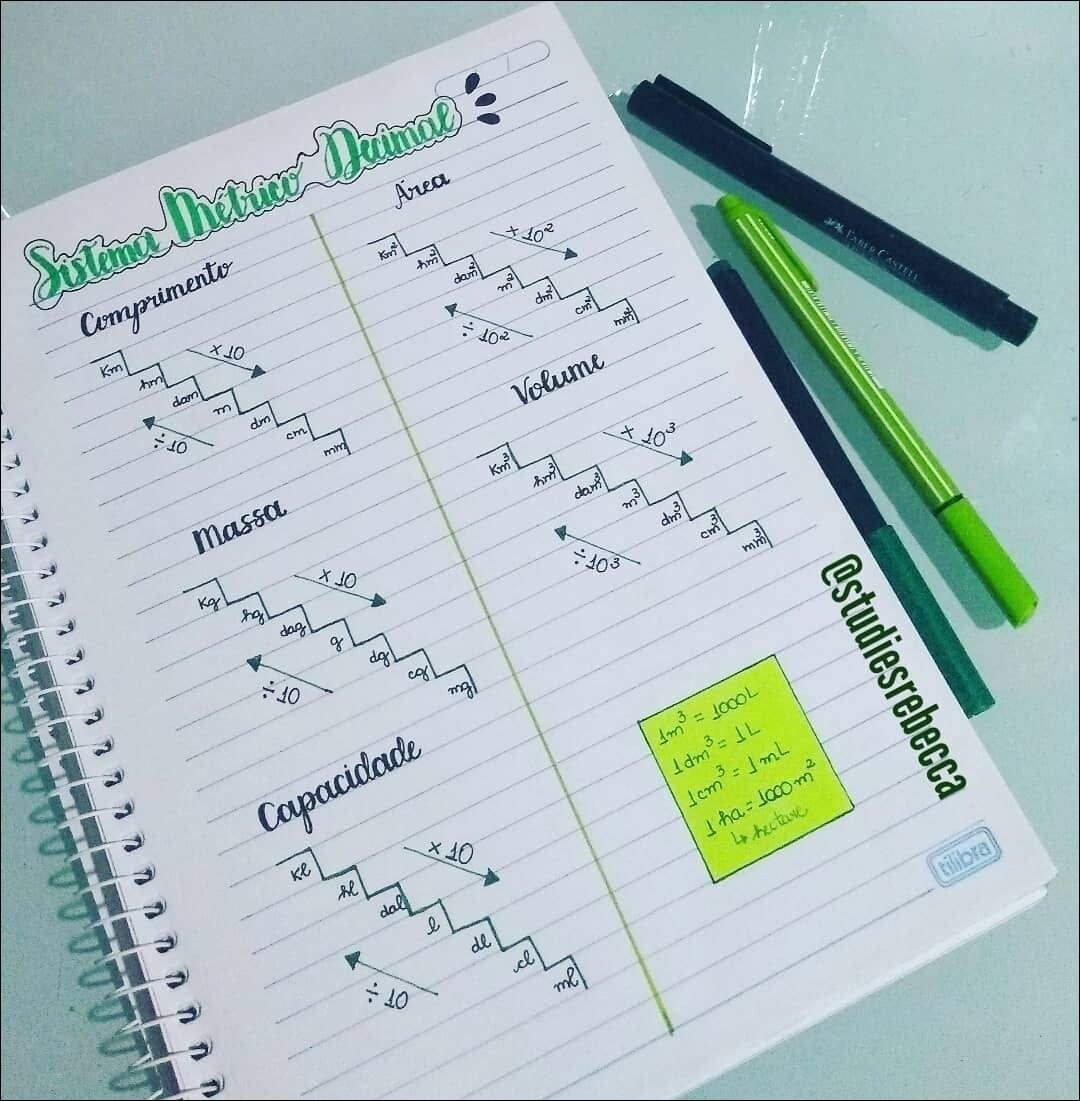 Sistema Métrico Decimal
Comprimento
Km
hm
dam
m
dm
cm
mm
×10
÷10
Massa
Kg
hg
dag
g
dg
cg
mg
×10
÷10
Capacidade
Kl
hl
dal
l
dl
cl
ml
×10
÷10
Área
Km²
hm²
dam²
m²
dm²
cm²
mm²
× 10²
÷10²
Volume
Km³
hm³
dam³
m³
dm³
cm³
mm³
× 10³
÷10³
1m³ = 1000L
1dm³ = 1L
1cm³ = 1mL
1ha = 1000m²
↳ hectare
@studiesrebecca
tilibra
FABER CASTELL